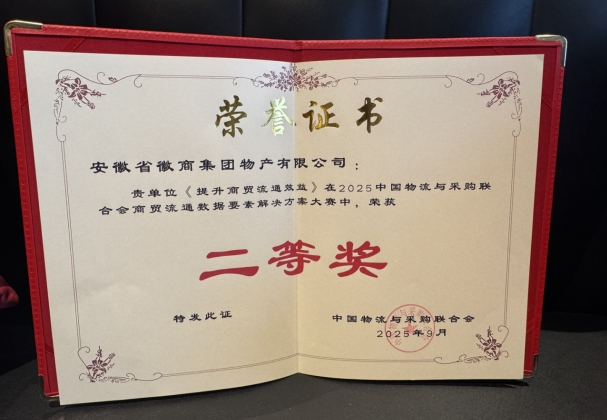 荣誉证书
安徽省徽商集团物产有限公司：
贵单位《提升商贸流通效益》在2025中国物流与采购联
合会商贸流通数据要素解决方案大赛中，荣获
二等奖
特发此证
中国物流与采购联合会
2025年9月